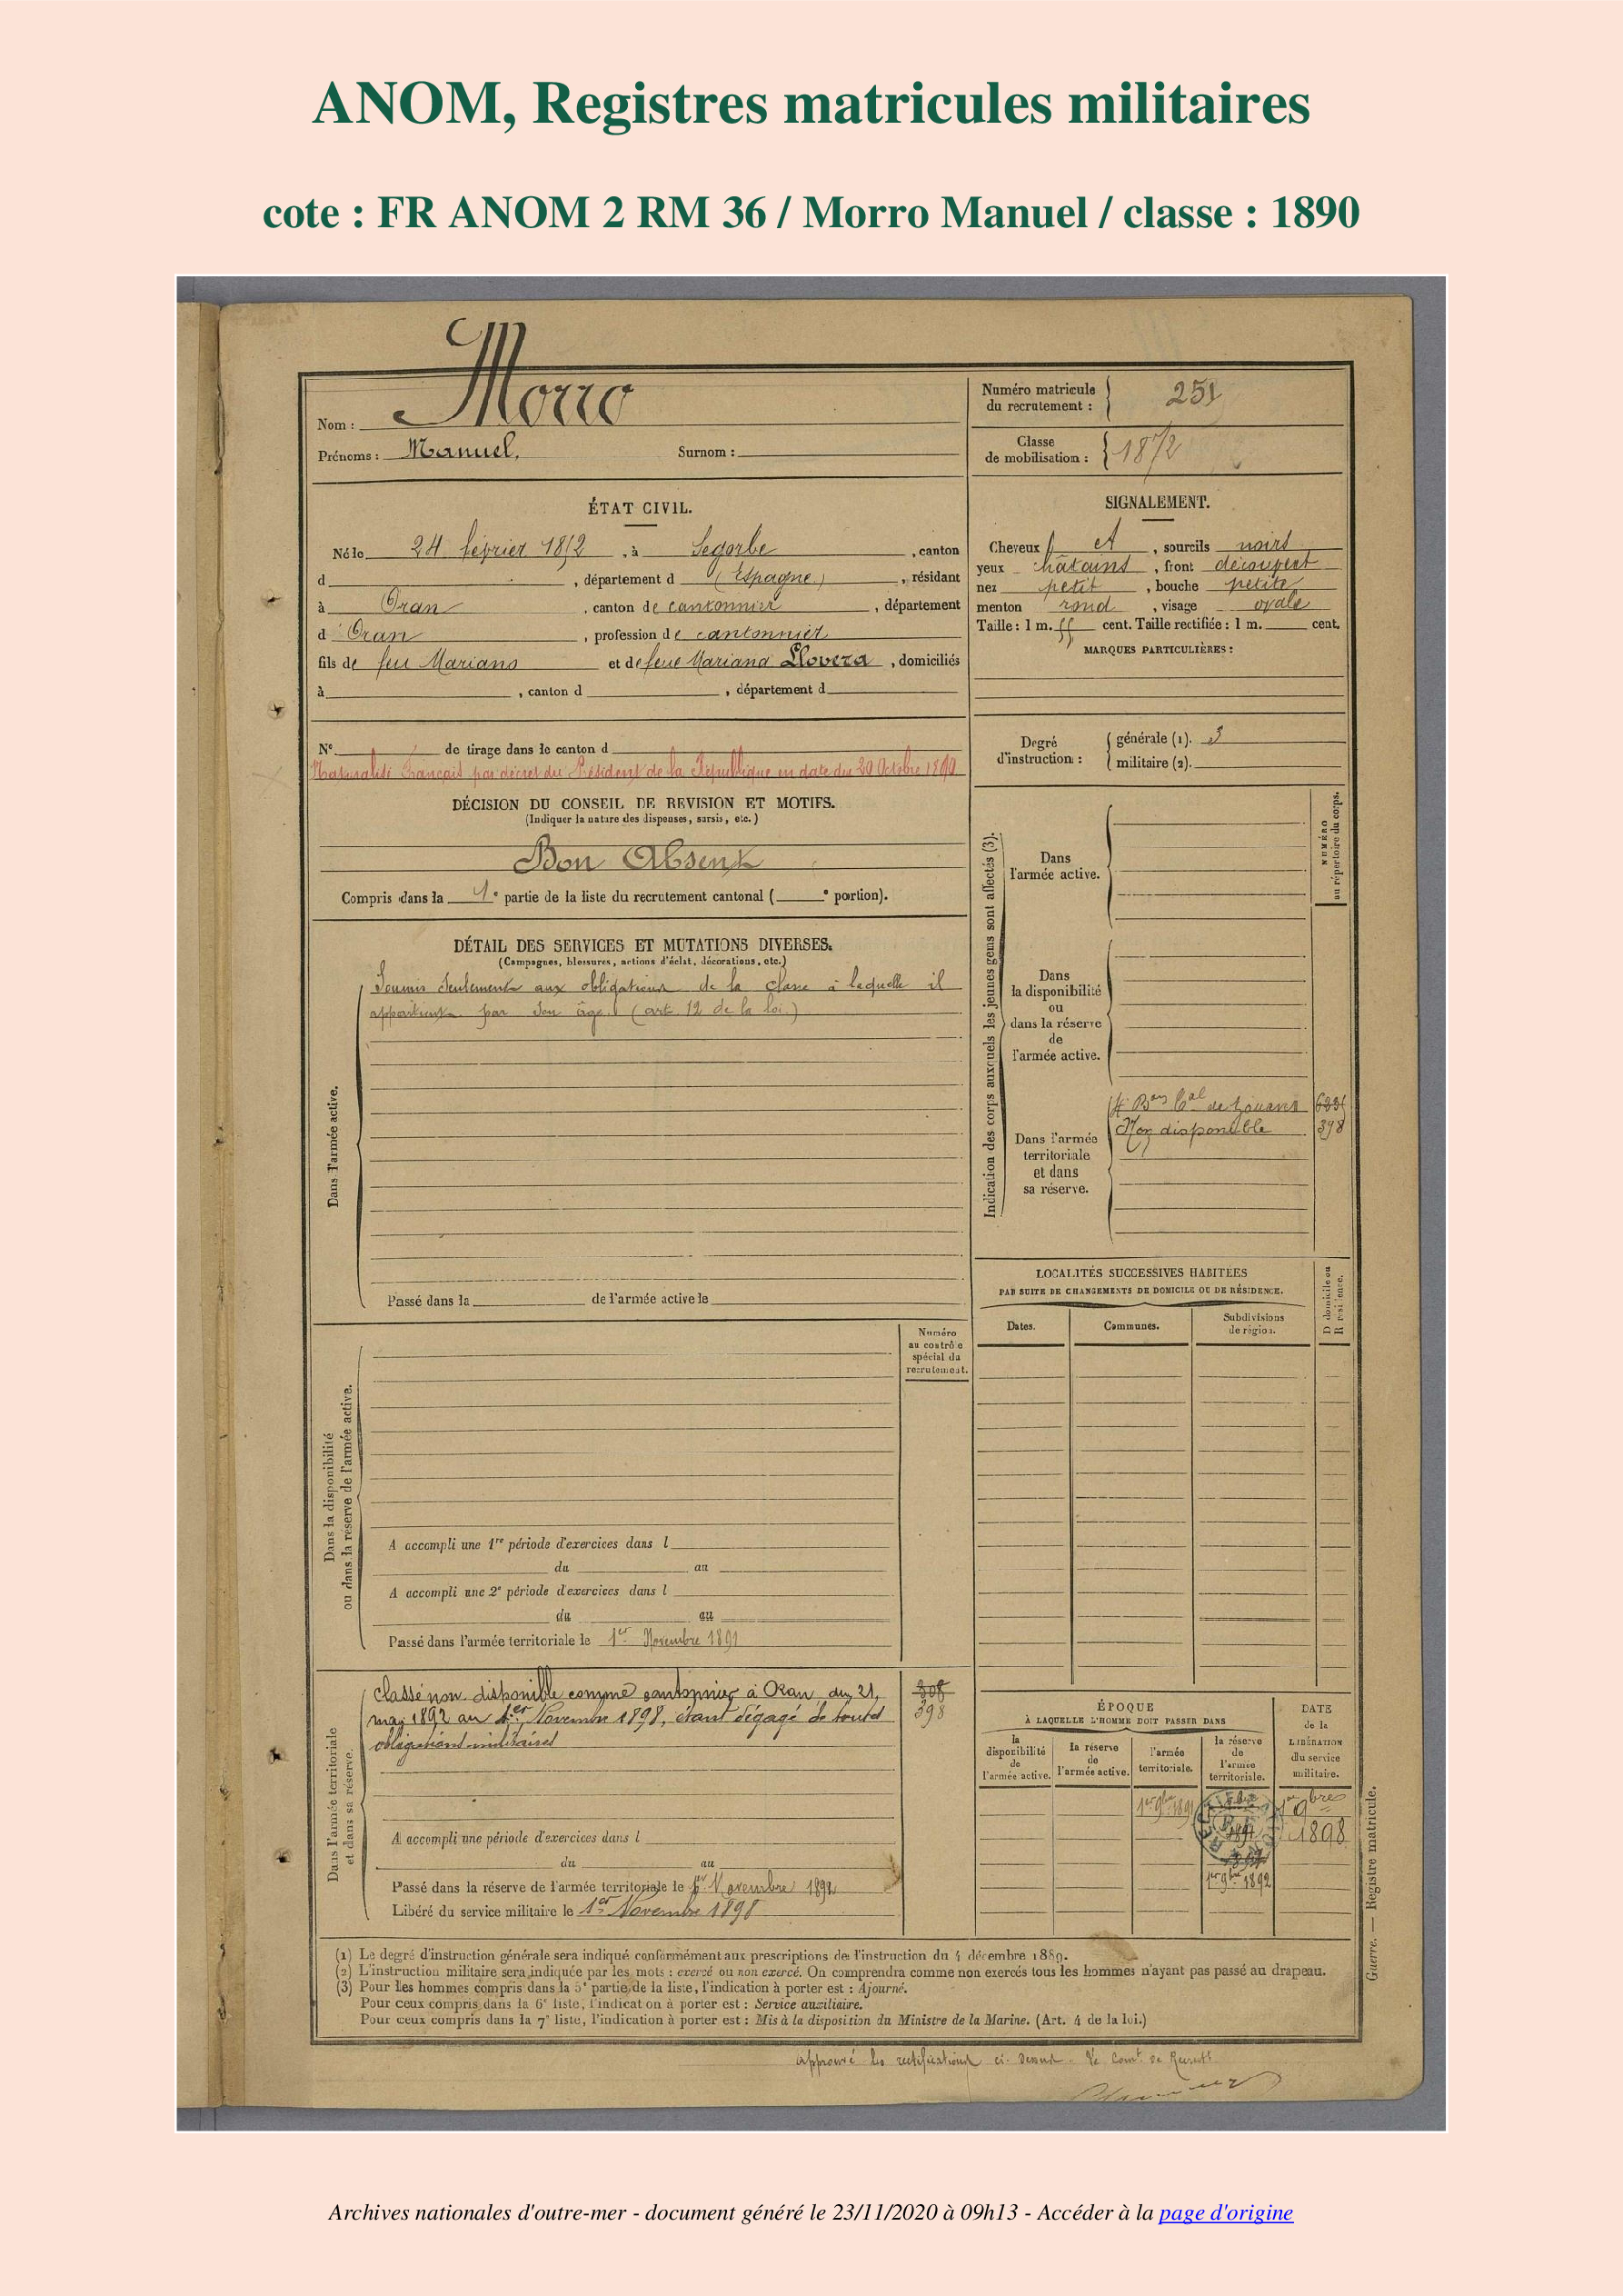 ANOM, Registres matricules militaires
cote : FR ANOM 2 RM 36 / Morro Manuel / classe : 1890
Nom : Morro
Prénoms : Manuel, Surnom :
Numéro matricule
du recrutement : 251
Classe
de mobilisation : 1872
ÉTAT CIVIL.
Né le 24 février 1852, à Segorbe, canton
d , département d (Espagne), résidant
à Oran, canton de cantonnier, département
d'Oran, profession de cantonnier
fils de feu Mariano et de feue Mariana Llovera, domiciliés
à , canton d , département d
SIGNALEMENT.
Cheveux et , sourcils noirs
yeux châtains, front découvert
nez petit, bouche petite
menton rond, visage ovale
Taille : 1 m. 55 cent. Taille rectifiée : 1 m. cent.
MARQUES PARTICULIÈRES :
N° de tirage dans le canton d
Naturalisé Français par décret du Président de la République en date du 20 Octobre 1890
Degré
d'instruction :
générale (1). 3
militaire (2).
DÉCISION DU CONSEIL DE REVISION ET MOTIFS.
(Indiquer la nature des dispenses, sursis, etc.)
Bon Absent
Compris dans la 1e partie de la liste du recrutement cantonal ( e portion).
DÉTAIL DES SERVICES ET MUTATIONS DIVERSES.
(Campagnes, blessures, actions d'éclat, décorations, etc.)
Dans l'armée active.
Soumis seulement aux obligations de la classe à laquelle il
appartient par son âge. (art. 12 de la loi.)
Passé dans la de l'armée active le
Indication des corps auxquels les jeunes gens sont affectés (3).
NUMÉRO
au répertoire du corps.
Dans
l'armée active.
Dans
la disponibilité
ou
dans la réserve
de
l'armée active.
Dans l'armée
territoriale
et dans
sa réserve.
4e Bon tal de Zouaves
Non disponible 398
Numéro
au contrôle
spécial du
recrutement.
Dans la disponibilité
ou dans la réserve de l'armée active.
A accompli une 1re période d'exercices dans l
du au
A accompli une 2e période d'exercices dans l
du au
Passé dans l'armée territoriale le 1er Novembre 1891
LOCALITÉS SUCCESSIVES HABITÉES
PAR SUITE DE CHANGEMENTS DE DOMICILE OU DE RÉSIDENCE.
Dates.
Communes.
Subdivisions
de région.
D domicile ou
R résidence.
Dans l'armée territoriale
et dans sa réserve.
Classé non disponible comme cantonnier à Oran du 21
mai 1892 au 1er Novembre 1898, étant dégagé de toutes
obligations militaires
308
398
A accompli une période d'exercices dans l
du au
Passé dans la réserve de l'armée territoriale le 1er Novembre 1892
Libéré du service militaire le 1er Novembre 1898
ÉPOQUE
À LAQUELLE L'HOMME DOIT PASSER DANS
la
disponibilité
de
l'armée active.
la réserve
de
l'armée active.
l'armée
territoriale.
la réserve
de
l'armée
territoriale.
DATE
de la
LIBÉRATION
du service
militaire.
1er 9bre 1891
1er 9bre 1892
1er 9bre
1898
(1) Le degré d'instruction générale sera indiqué conformément aux prescriptions de l'instruction du 4 décembre 1889.
(2) L'instruction militaire sera indiquée par les mots : exercé ou non exercé. On comprendra comme non exercés tous les hommes n'ayant pas passé au drapeau.
(3) Pour les hommes compris dans la 5e partie de la liste, l'indication à porter est : Ajourné.
Pour ceux compris dans la 6e liste, l'indication à porter est : Service auxiliaire.
Pour ceux compris dans la 7e liste, l'indication à porter est : Mis à la disposition du Ministre de la Marine. (Art. 4 de la loi.)
Guerre. — Registre matricule.
approuvé les rectifications ci-dessus. Le Comt de Recrutt
Archives nationales d'outre-mer - document généré le 23/11/2020 à 09h13 - Accéder à la page d'origine